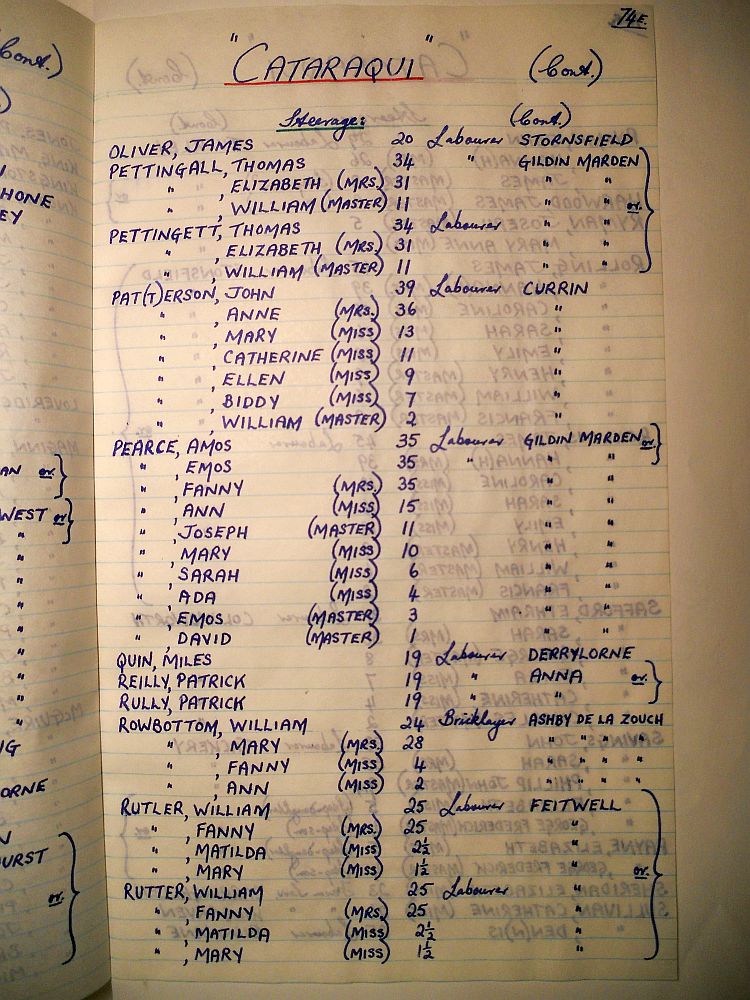 74E.
"CATARAQUI" (Cont.)
Steerage: (Cont.)
OLIVER, JAMES 20 Labourer STORNSFIELD
PETTINGALL, THOMAS 34 " GILDIN MARDEN
" , ELIZABETH (MRS.) 31 " "
" , WILLIAM (MASTER) 11 " " or.
PETTINGETT, THOMAS 34 Labourer " "
" , ELIZABETH (MRS.) 31 " "
" , WILLIAM (MASTER) 11 " "
PAT(T)ERSON, JOHN 39 Labourer CURRIN
" , ANNE (MRS.) 36 "
" , MARY (MISS) 13 "
" , CATHERINE (MISS) 11 "
" , ELLEN (MISS) 9 "
" , BIDDY (MISS) 7 "
" , WILLIAM (MASTER) 2 "
PEARCE, AMOS 35 Labourer GILDIN MARDEN or.
" , EMOS 35 " " "
" , FANNY (MRS.) 35 " "
" , ANN (MISS) 15 " "
" , JOSEPH (MASTER) 11 " "
" , MARY (MISS) 10 " "
" , SARAH (MISS) 6 " "
" , ADA (MISS) 4 " "
" , EMOS (MASTER) 3 " "
" , DAVID (MASTER) 1 " "
QUIN, MILES 19 Labourer DERRYLORNE
REILLY, PATRICK 19 " ANNA or.
RULLY, PATRICK 19 " "
ROWBOTTOM, WILLIAM 24 Bricklayer ASHBY DE LA ZOUCH
" , MARY (MRS.) 28 " " " "
" , FANNY (MISS) 4 " " " "
" , ANN (MISS) 2 " " " "
RUTLER, WILLIAM 25 Labourer FEITWELL
" , FANNY (MRS.) 25 "
" , MATILDA (MISS) 2½ "
" , MARY (MISS) 1½ " or.
RUTTER, WILLIAM 25 Labourer "
" , FANNY (MRS.) 25 "
" , MATILDA (MISS) 2½ "
" , MARY (MISS) 1½ "